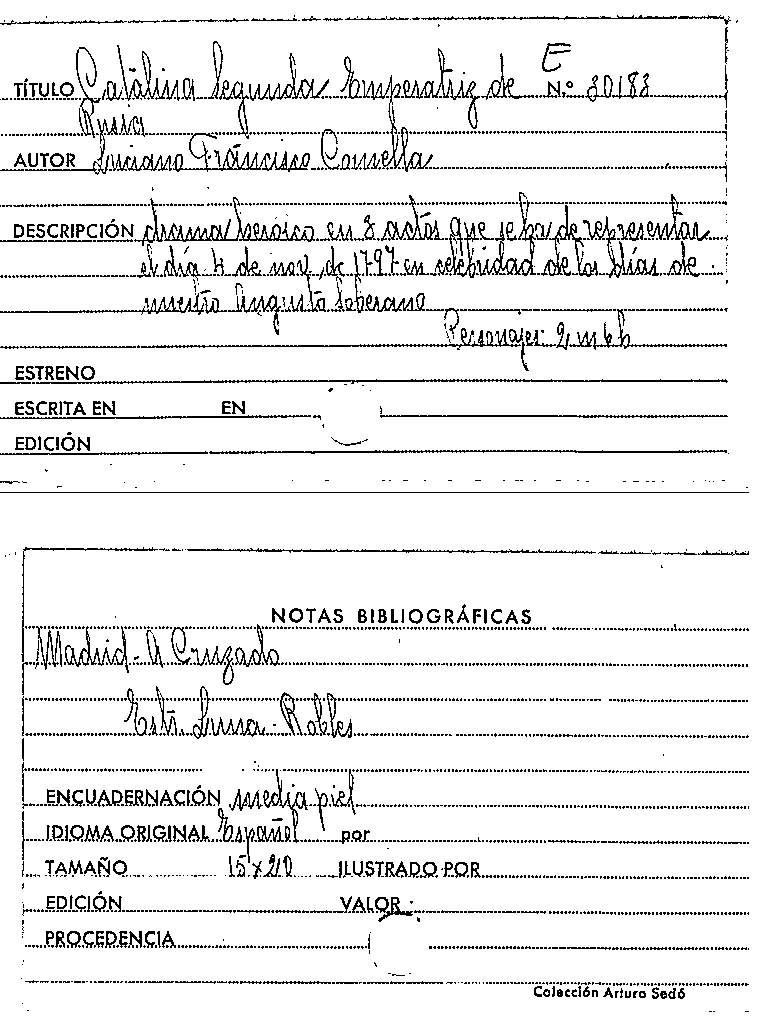 E
TÍTULO Catalina Segunda Emperatriz de N.º 30183
Rusia
AUTOR Luciano Francisco Comella
DESCRIPCIÓN drama heroico en 3 actos que se ha de representar
el día 4 de nov. de 1797 en celebridad de los Días de
nuestro Augusto Soberano
Personajes: 2 m 6 h
ESTRENO
ESCRITA EN EN
EDICIÓN
NOTAS BIBLIOGRÁFICAS
Madrid - A Cruzado
Estr. Luna - Robles
ENCUADERNACIÓN media piel
IDIOMA ORIGINAL Español por
TAMAÑO 15 x 20 ILUSTRADO POR
EDICIÓN VALOR
PROCEDENCIA
Colección Arturo Sedó